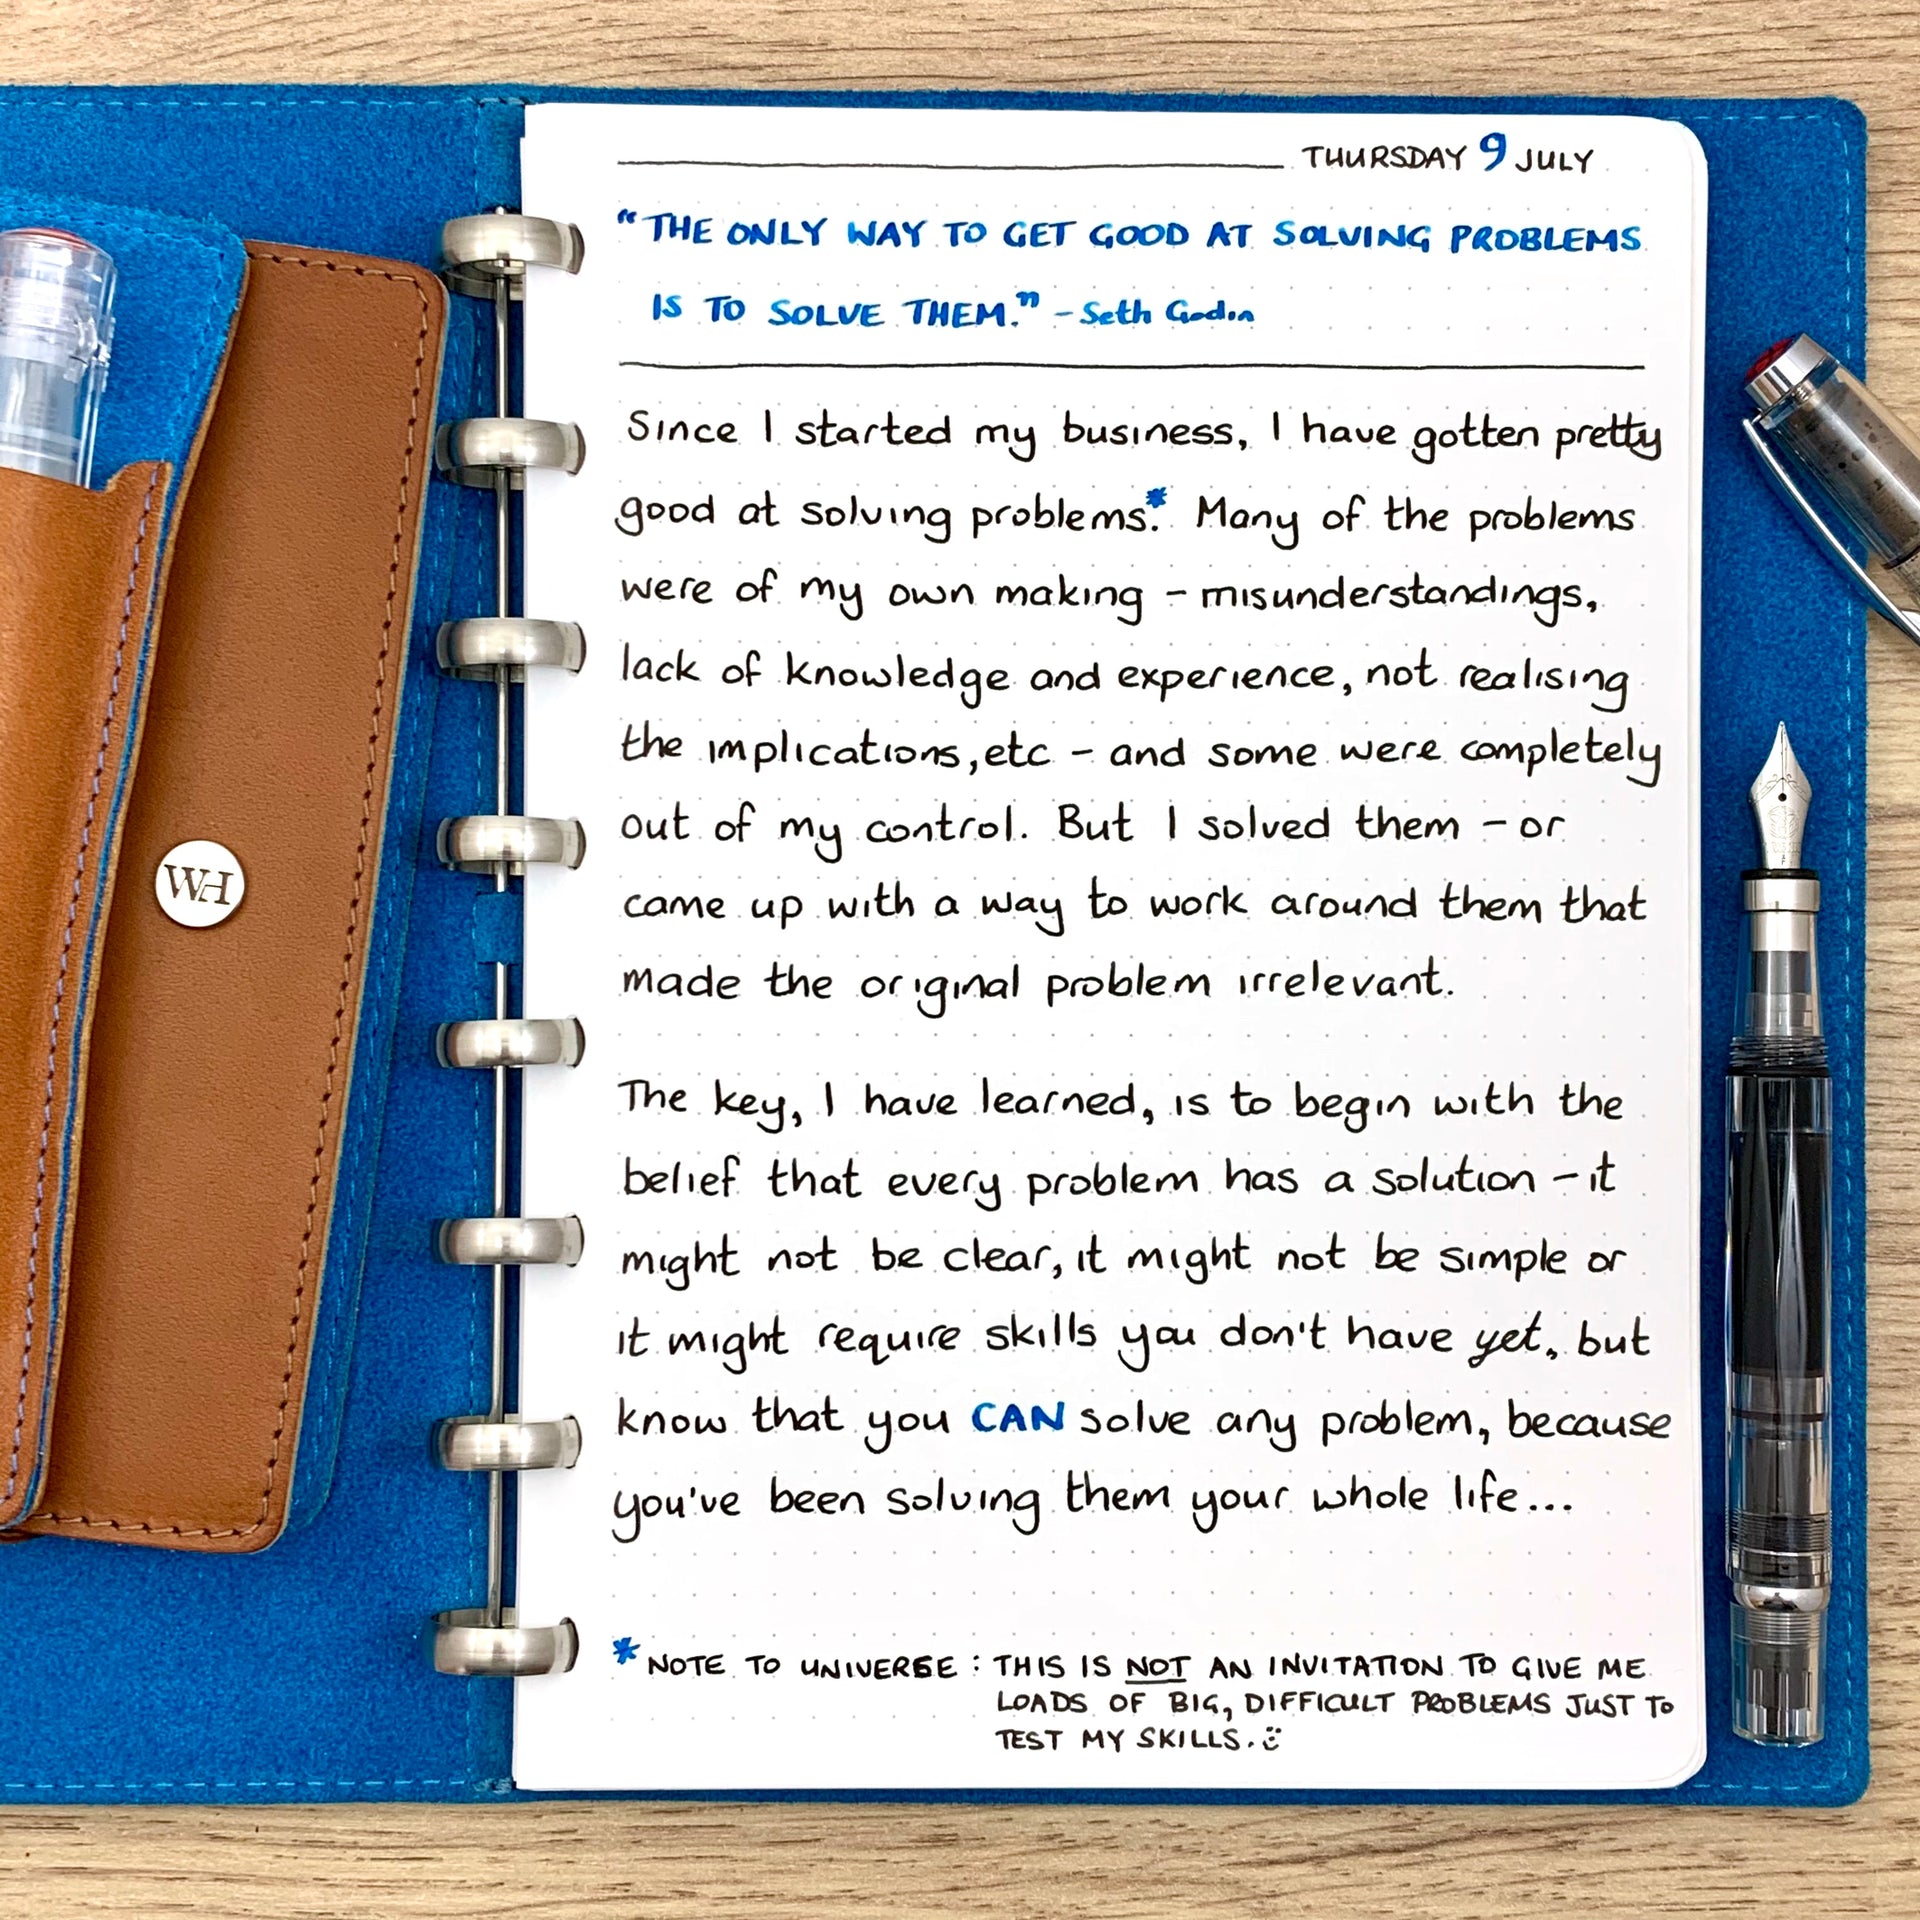 THURSDAY 9 JULY
"THE ONLY WAY TO GET GOOD AT SOLVING PROBLEMS
IS TO SOLVE THEM." - Seth Godin
Since I started my business, I have gotten pretty
good at solving problems.* Many of the problems
were of my own making - misunderstandings,
lack of knowledge and experience, not realising
the implications, etc - and some were completely
out of my control. But I solved them - or
came up with a way to work around them that
made the original problem irrelevant.
The key, I have learned, is to begin with the
belief that every problem has a solution - it
might not be clear, it might not be simple or
it might require skills you don't have yet, but
know that you CAN solve any problem, because
you've been solving them your whole life...
* NOTE TO UNIVERSE : THIS IS NOT AN INVITATION TO GIVE ME
LOADS OF BIG, DIFFICULT PROBLEMS JUST TO
TEST MY SKILLS. :)
WH